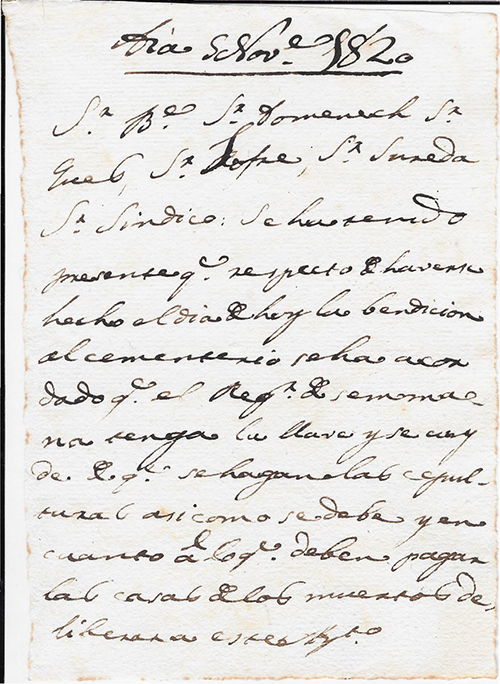 Dia 5 Nov.e 1820
S.r B.e S.r Domenech S.r
Gues, S.r Jofre, S.r Sureda
S.r Sindico: Se ha tenido
presente q.e respecto de haverse
hecho el dia de hoy la bendicion
al cementerio se ha acor
dado q.e el Reg.r de semema-
na tenga la llave y se cuy
de de q.e se hagan las cepul-
turas asi como se debe y en
cuanto a lo q.e deben pagar
las casas de los muertos de-
liberara este Ay.to